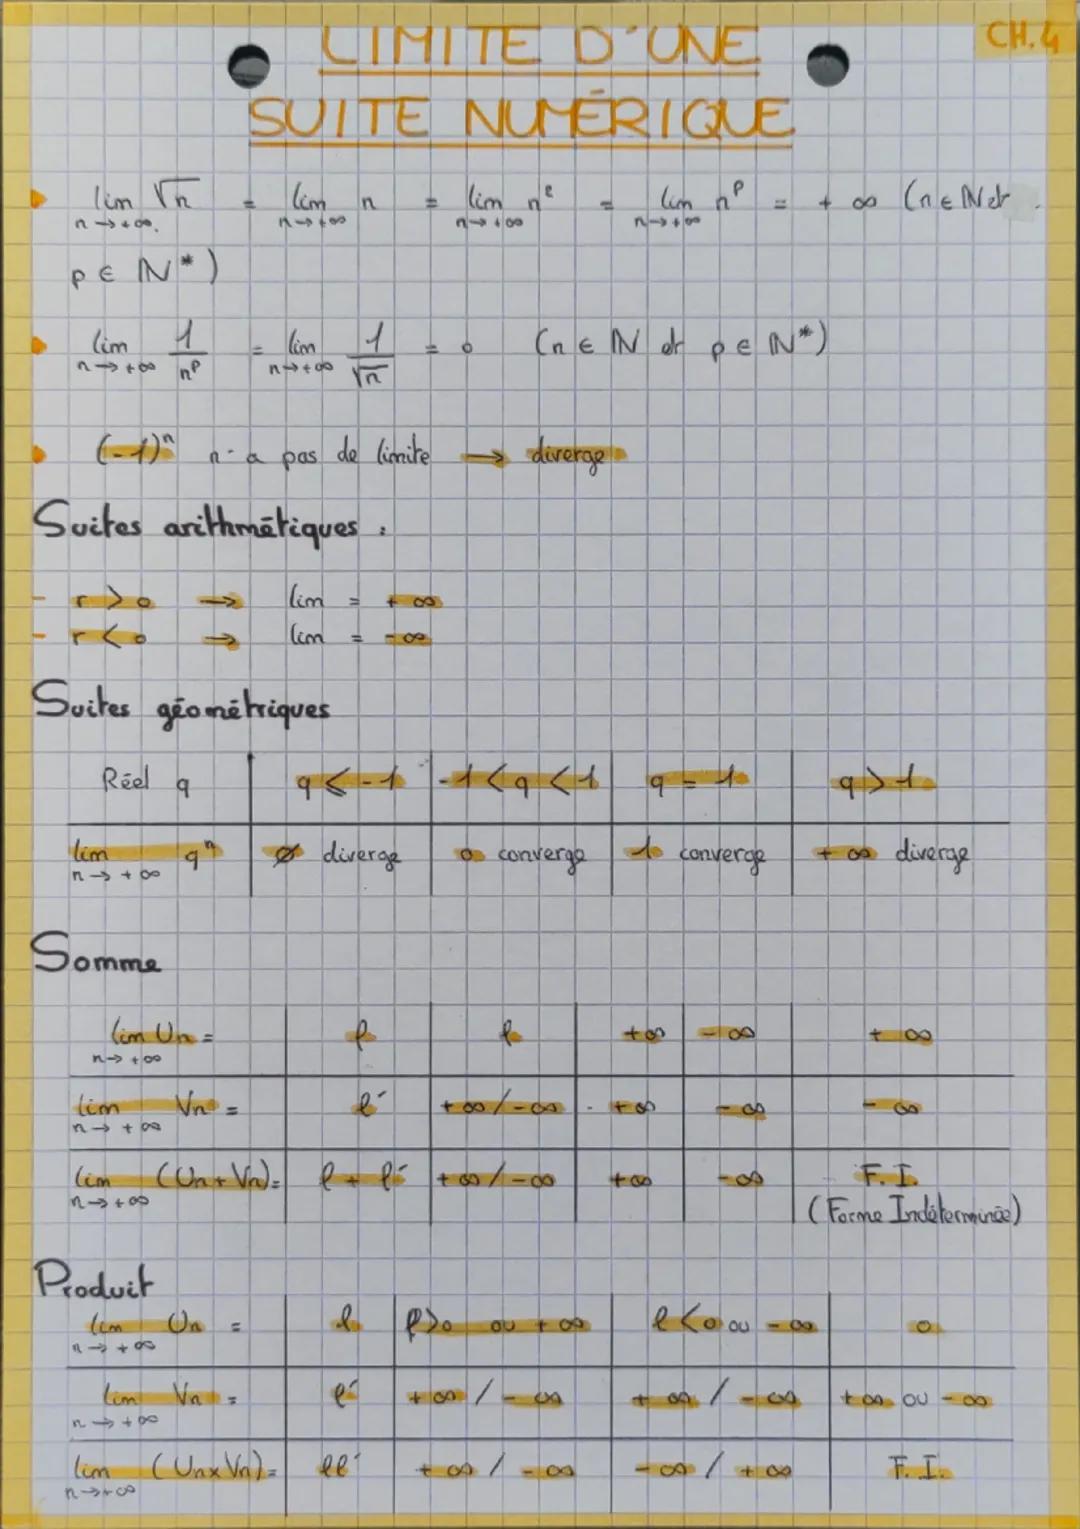 CH.4
LIMITE D'UNE
SUITE NUMÉRIQUE
lim √n = lim n = lim n² = lim n^p = + ∞ (n ∈ ℕ et
n → +∞. n → +∞ n → +∞ n → +∞
p ∈ ℕ*)
lim 1/n^p = lim 1/√n = 0 (n ∈ ℕ et p ∈ ℕ*)
n → +∞ n → +∞
(-1)^n n'a pas de limite → diverge
Suites arithmétiques :
- r > 0 → lim = + ∞
- r < 0 → lim = - ∞
Suites géométriques
Réel q | q < -1 | -1 < q < 1 | q = 1 | q > 1
lim q^n | ∅ diverge | 0 converge | 1 converge | + ∞ diverge
n → +∞
Somme
lim Un = | ℓ | ℓ | +∞ | -∞ | + ∞
n → +∞
lim Vn = | ℓ' | +∞/-∞ | +∞ | -∞ | - ∞
n → +∞
lim (Un + Vn) = | ℓ + ℓ' | +∞/-∞ | +∞ | -∞ | F.I.
n → +∞ (Forme Indéterminée)
Produit
lim Un = | ℓ | ℓ>0 ou +∞ | ℓ<0 ou -∞ | 0
n → +∞
lim Vn = | ℓ' | +∞ / -∞ | +∞ / -∞ | +∞ ou -∞
n → +∞
lim (Un x Vn) = | ℓℓ' | +∞ / -∞ | -∞ / +∞ | F.I.
n → +∞